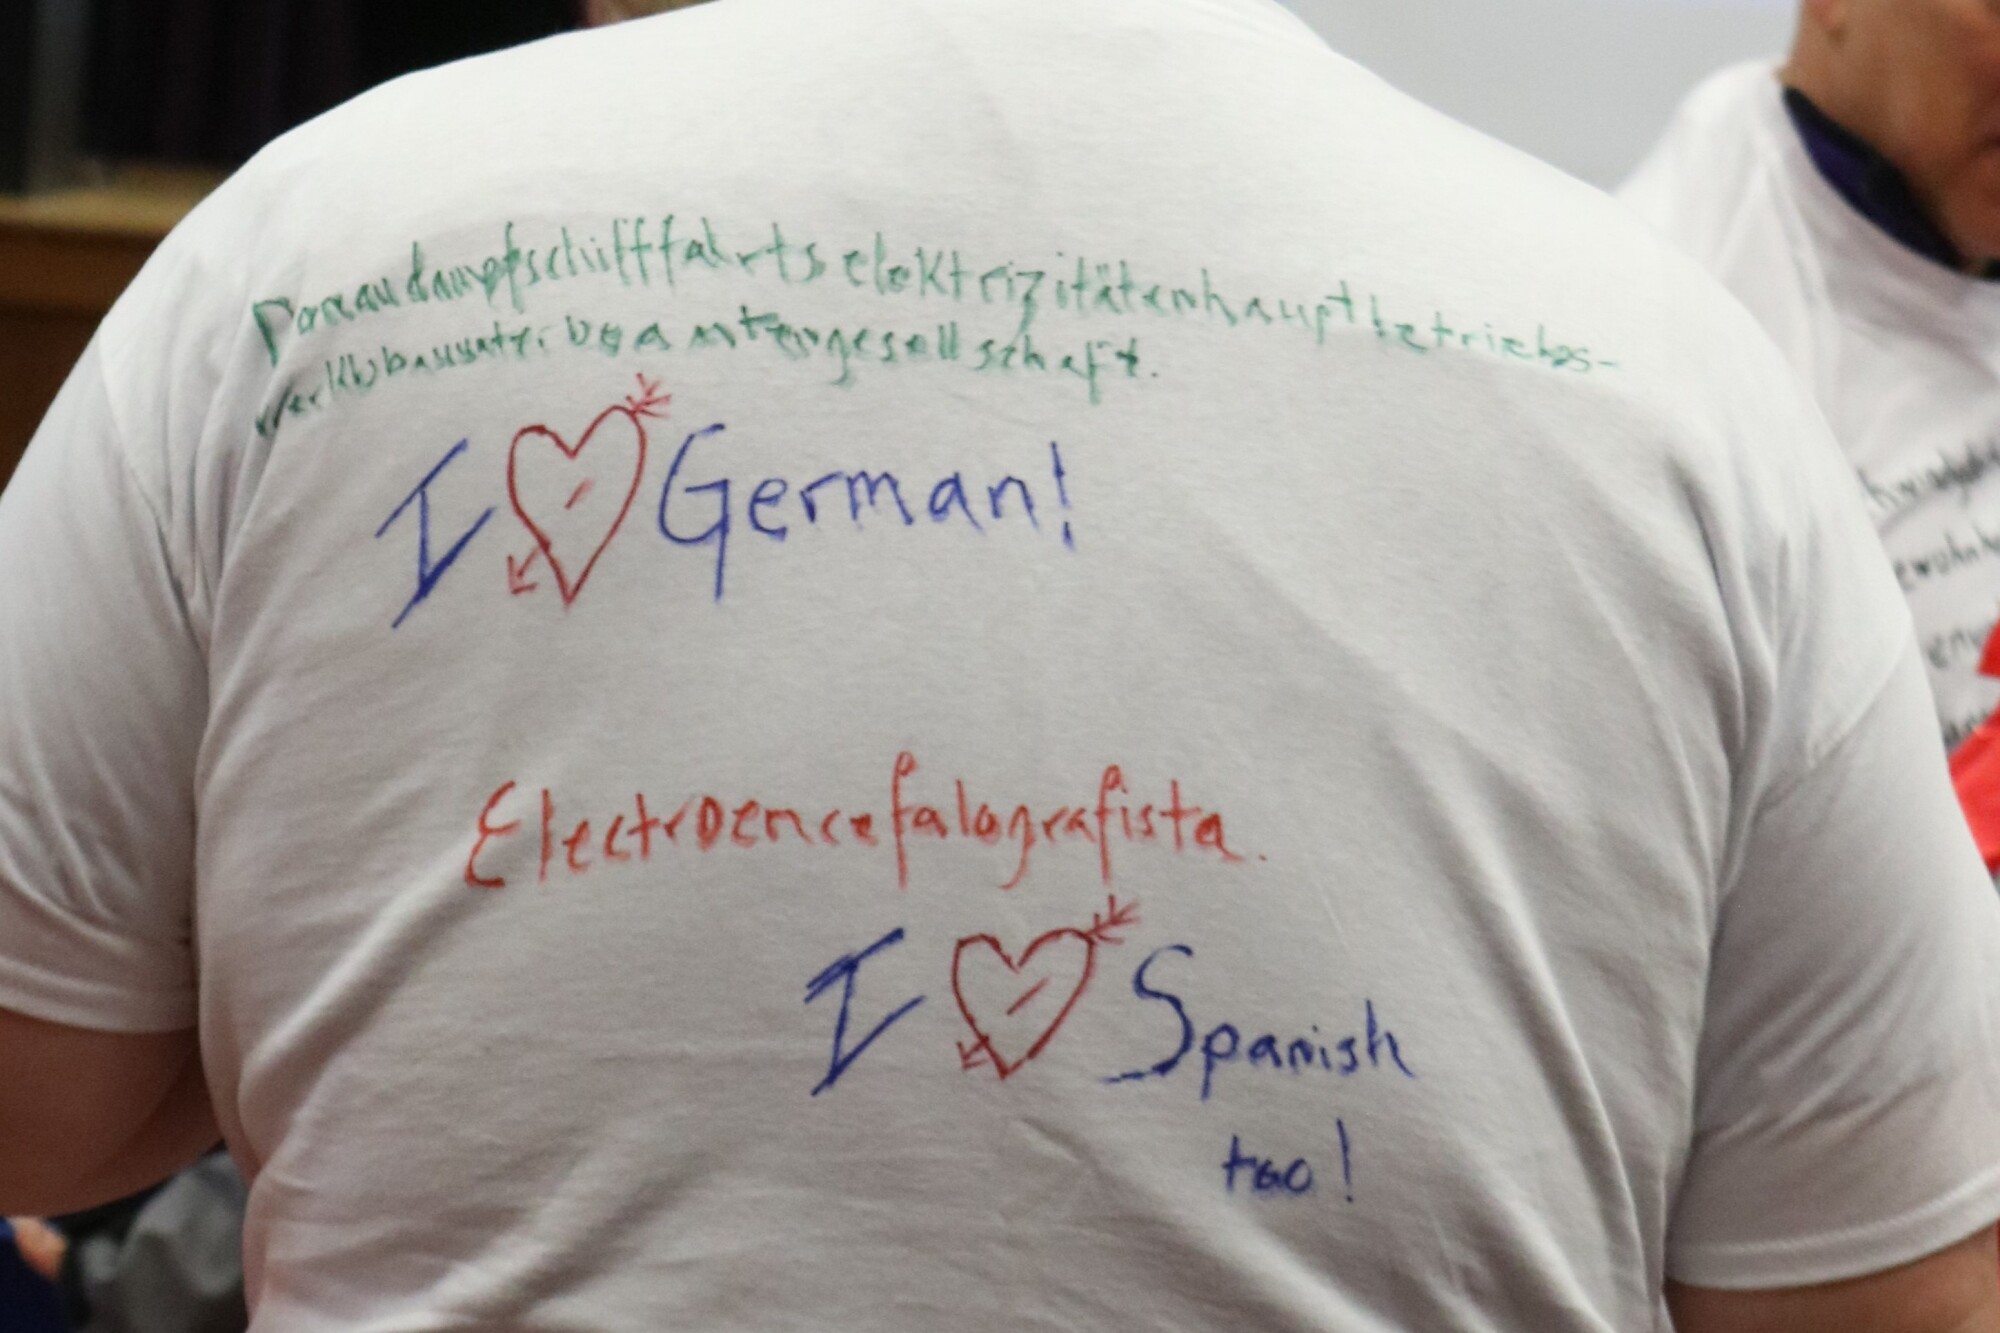 Donaudampfschifffahrtselektrizitätenhauptbetriebs-
werkbauunterbeamtengesellschaft.
I German!
Electroencefalografista.
I Spanish
too!